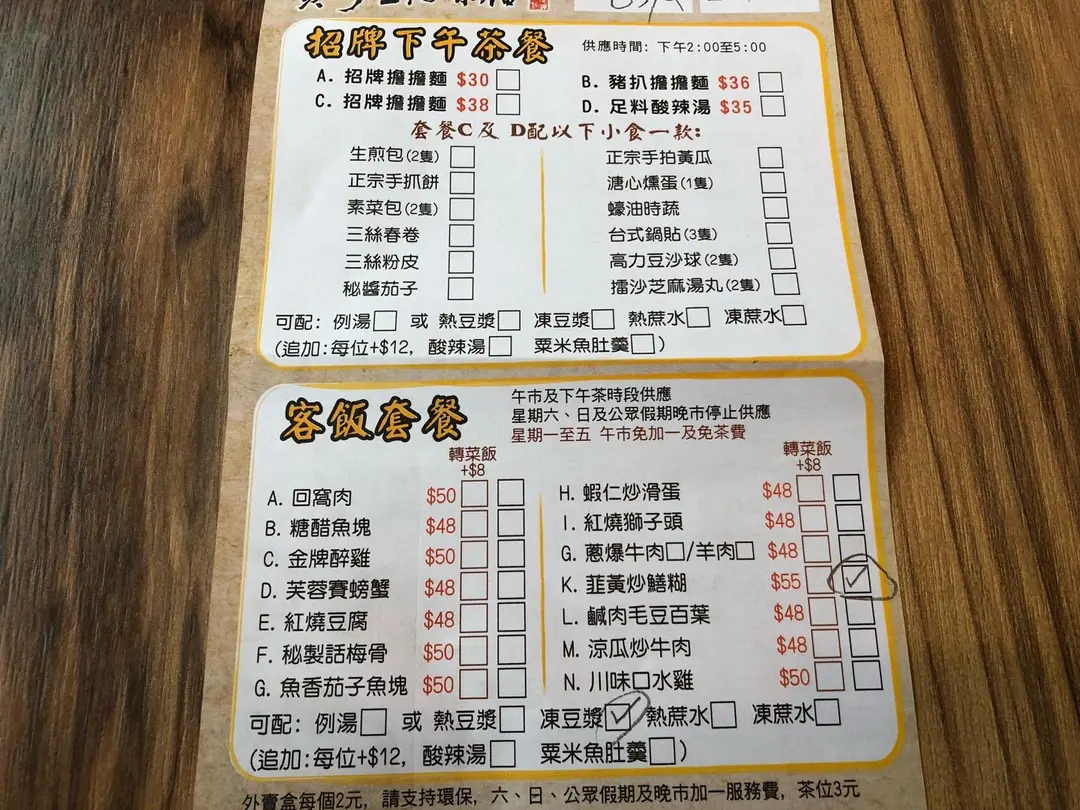 招牌下午茶餐 供應時間: 下午2:00至5:00
A. 招牌擔擔麵 $30 B. 豬扒擔擔麵 $36
C. 招牌擔擔麵 $38 D. 足料酸辣湯 $35
套餐C 及 D配以下小食一款:
生煎包(2隻) 正宗手拍黃瓜
正宗手抓餅 溏心燻蛋(1隻)
素菜包(2隻) 蠔油時蔬
三絲春卷 台式鍋貼(3隻)
三絲粉皮 高力豆沙球(2隻)
秘醬茄子 擂沙芝麻湯丸(2隻)
可配: 例湯 或 熱豆漿 凍豆漿 熱蔗水 凍蔗水
(追加:每位+$12, 酸辣湯 粟米魚肚羹)
客飯套餐
午市及下午茶時段供應
星期六、日及公眾假期晚市停止供應
星期一至五 午市免加一及免茶費
轉菜飯 轉菜飯
+$8 +$8
A. 回窩肉 $50 H. 蝦仁炒滑蛋 $48
B. 糖醋魚塊 $48 I. 紅燒獅子頭 $48
C. 金牌醉雞 $50 G. 蔥爆牛肉/羊肉 $48
D. 芙蓉賽螃蟹 $48 K. 韮黃炒鱔糊 $55
E. 紅燒豆腐 $48 L. 鹹肉毛豆百葉 $48
F. 秘製話梅骨 $50 M. 涼瓜炒牛肉 $48
G. 魚香茄子魚塊 $50 N. 川味口水雞 $50
可配: 例湯 或 熱豆漿 凍豆漿 熱蔗水 凍蔗水
(追加:每位+$12, 酸辣湯 粟米魚肚羹)
外賣盒每個2元, 請支持環保, 六、日、公眾假期及晚市加一服務費, 茶位3元